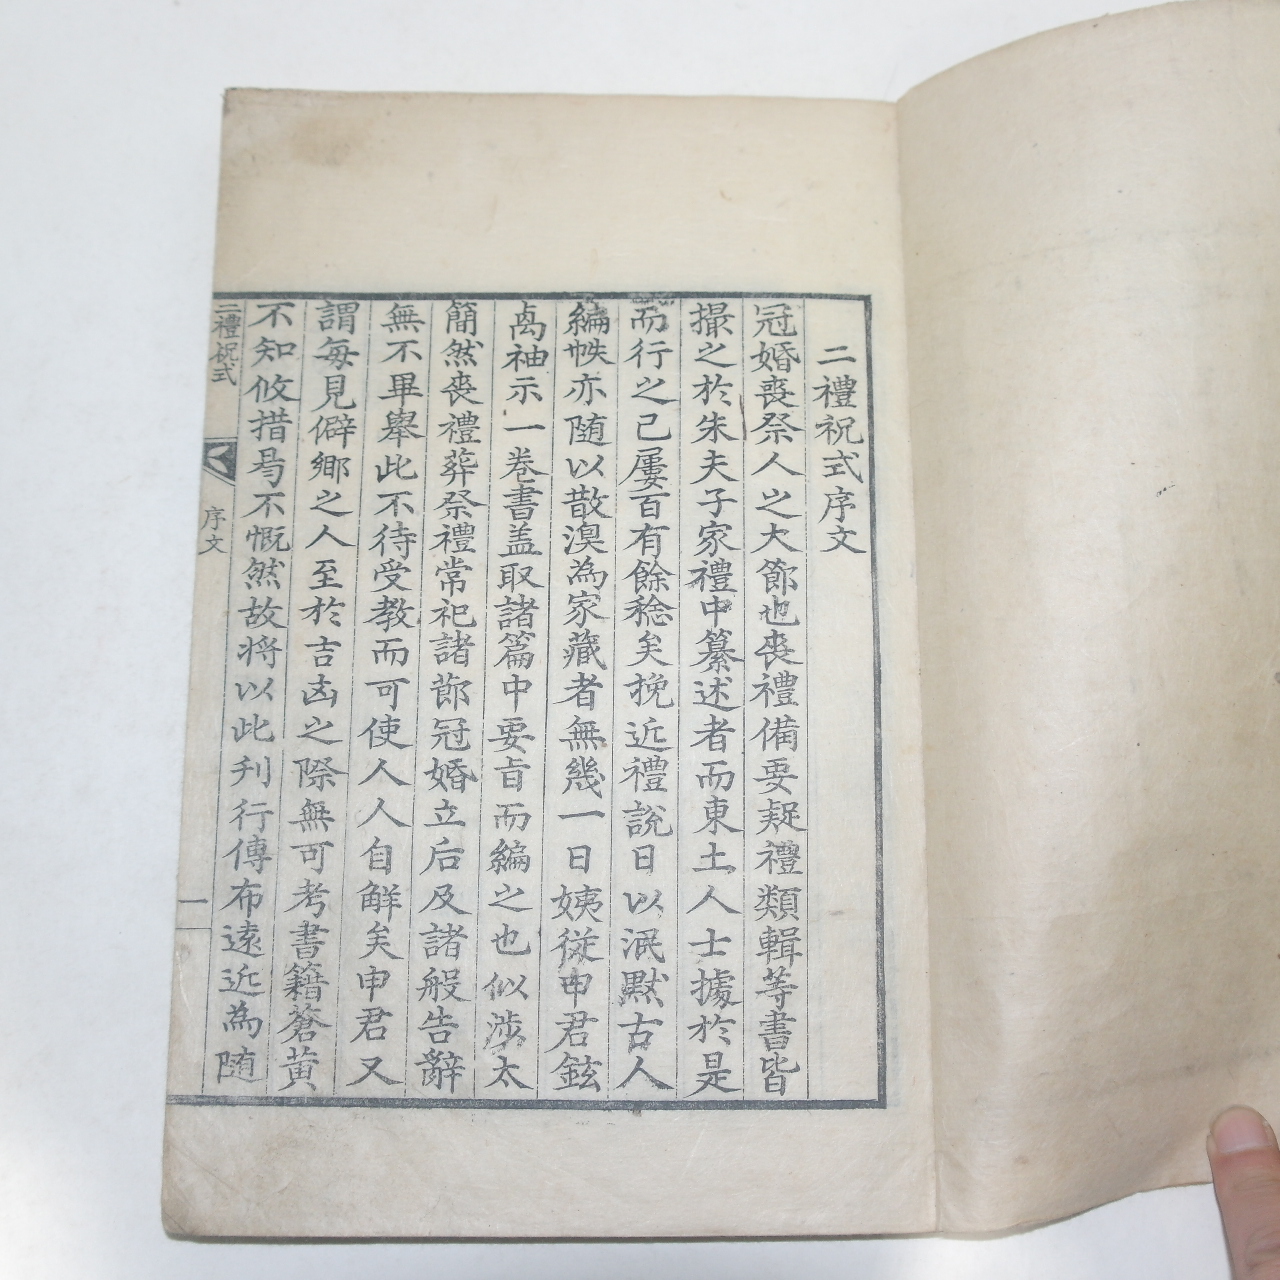 二禮祝式序文
冠婚喪祭人之大節也喪禮備要疑禮類輯等書皆
撮之於朱夫子家禮中纂述者而東土人士據於是
而行之已屢百有餘稔矣挽近禮說日以泯默古人
編帙亦随以散渙為家藏者無幾一日姨從申君鉉
禼袖示一卷書盖取諸篇中要旨而編之也似涉太
簡然喪禮葬祭禮常祀諸節冠婚立后及諸般告辭
無不畢舉此不待受教而可使人人自解矣申君又
謂每見僻鄉之人至於吉凶之際無可考書籍蒼黃
不知攸措曷不慨然故将以此刋行傳布遠近為随
二禮祝式
序文
一